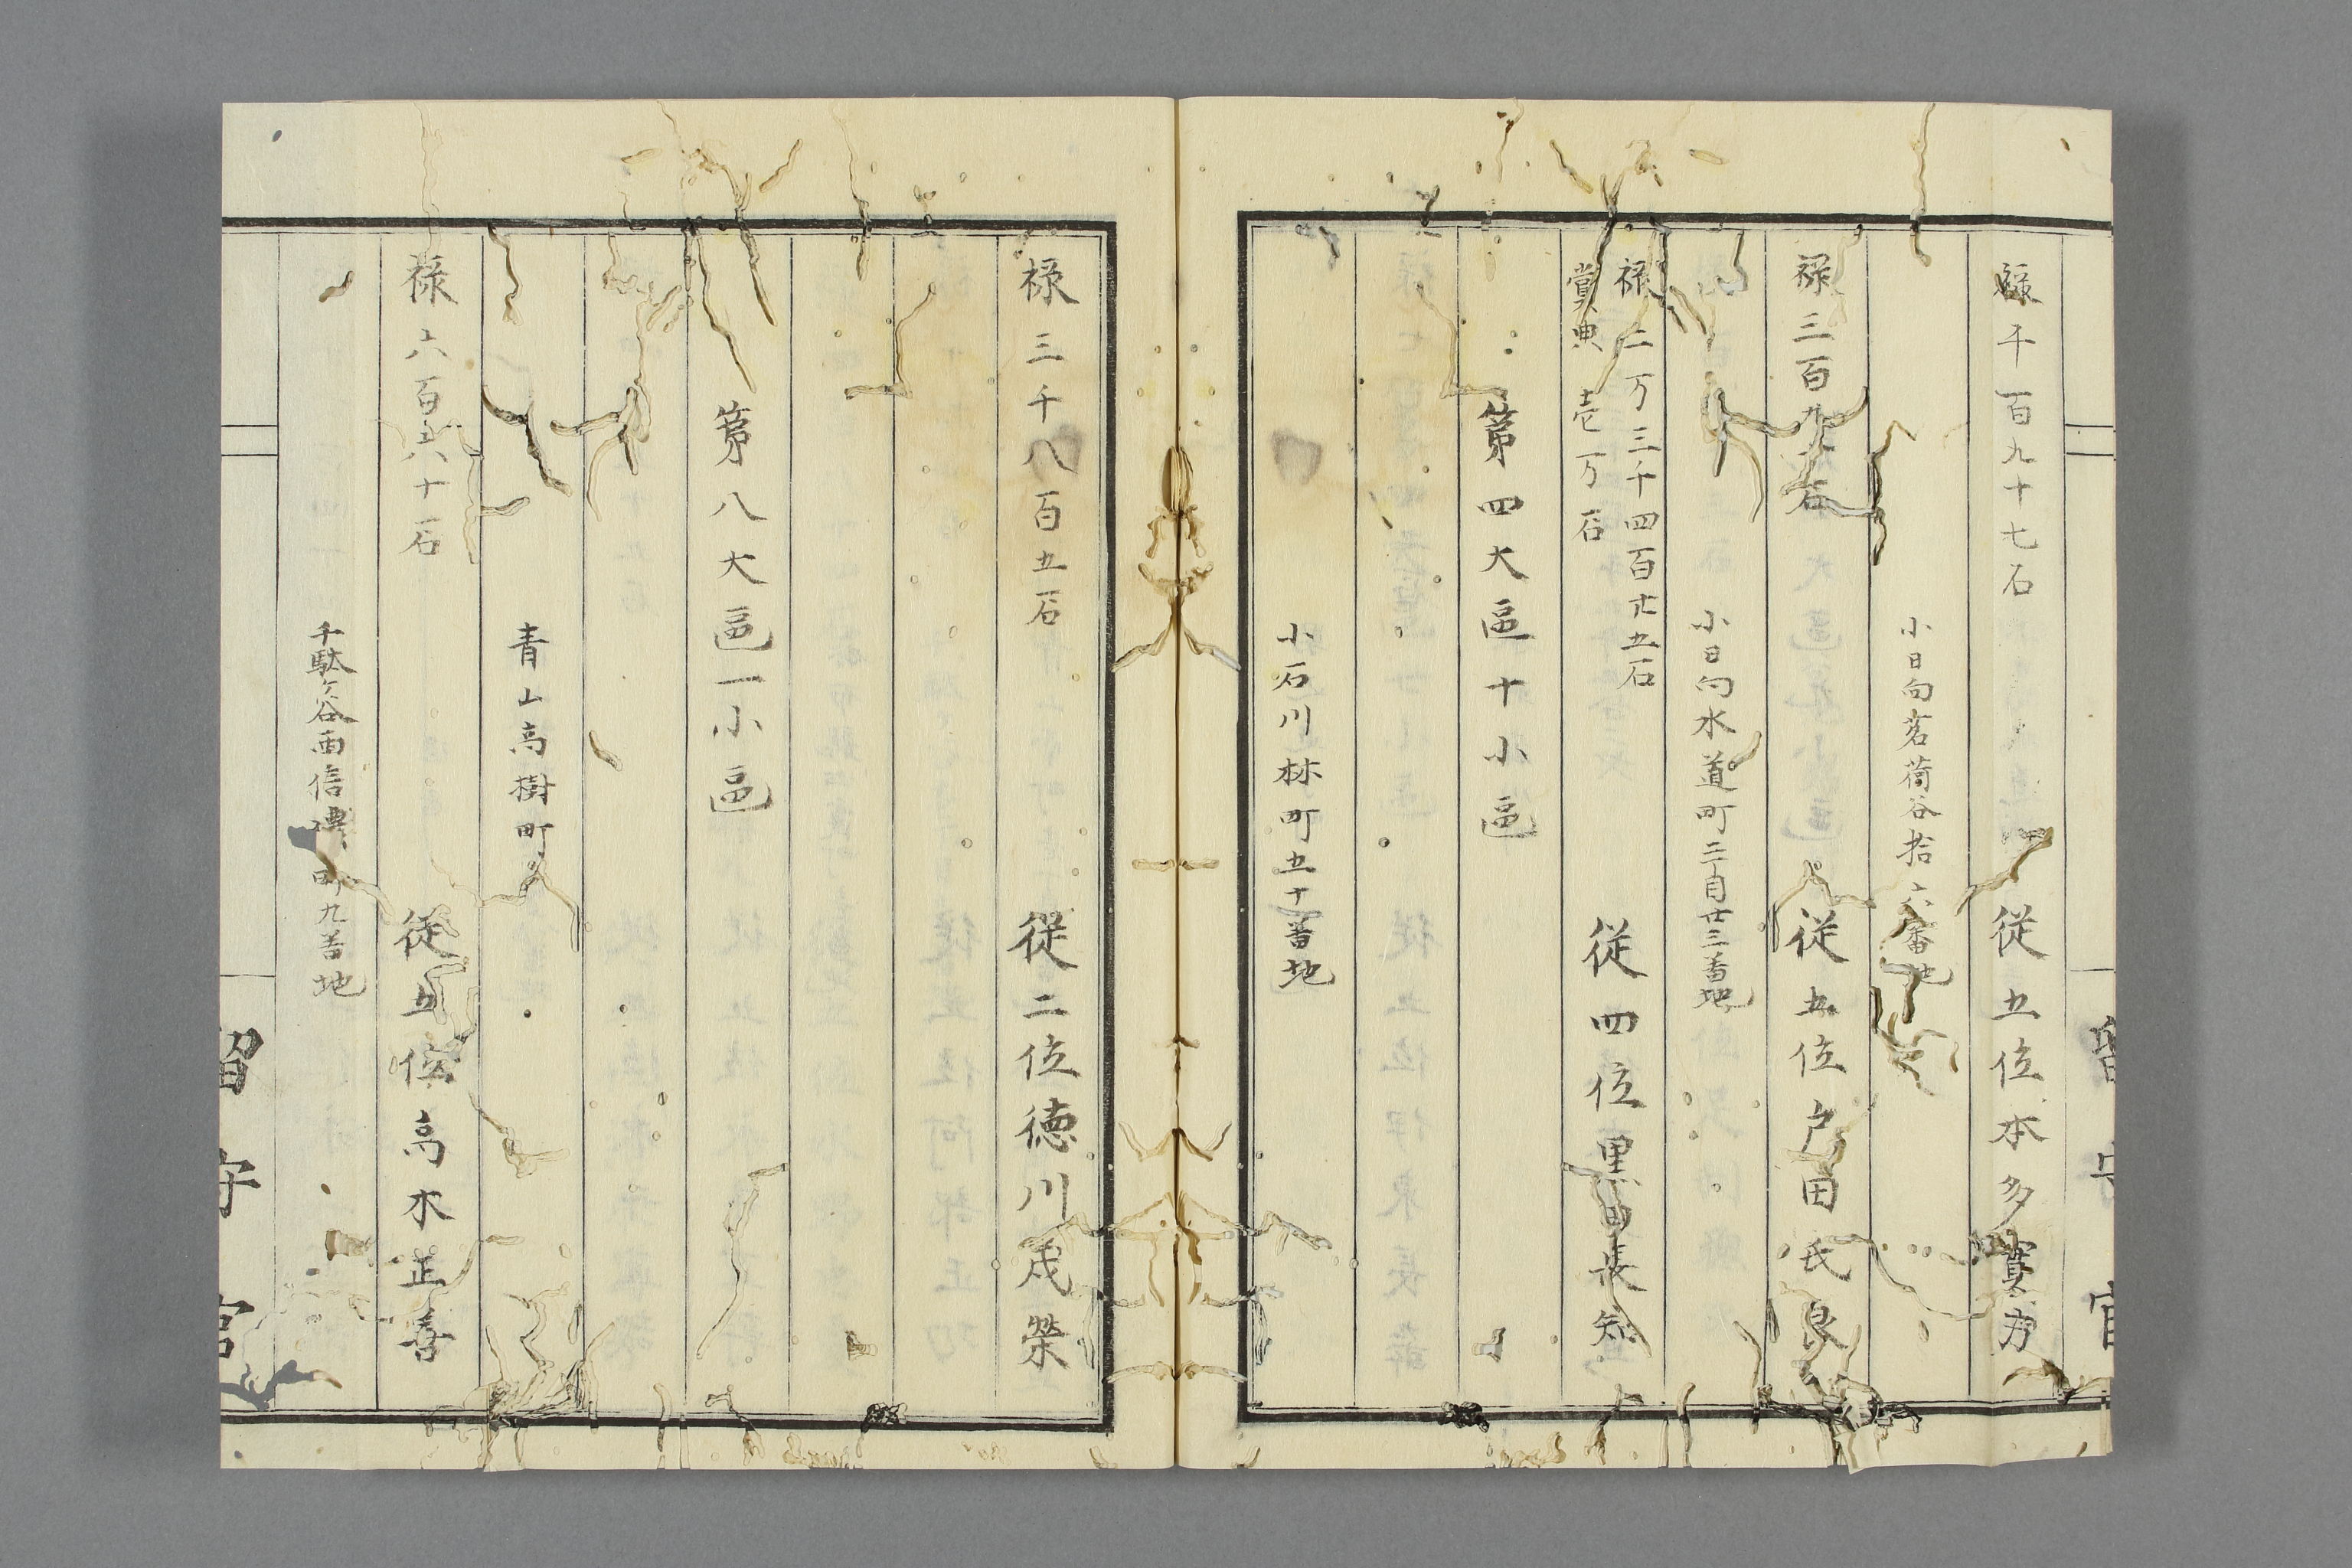 禄千百九十七石 従五位本多實方
小日向茗荷谷拾六番地
禄三百九十石 従五位戸田氏良
小日向水道町二丁目廿三番地
禄二万三千四百廿五石
賞典壱万石 従四位黒田長知
第四大區十小區
小石川林町五十番地
禄三千八百五石 従二位徳川茂榮
第八大區一小區
青山高樹町
禄六百六十石 従五位高木正善
千駄ヶ谷西信濃町九番地
留守官